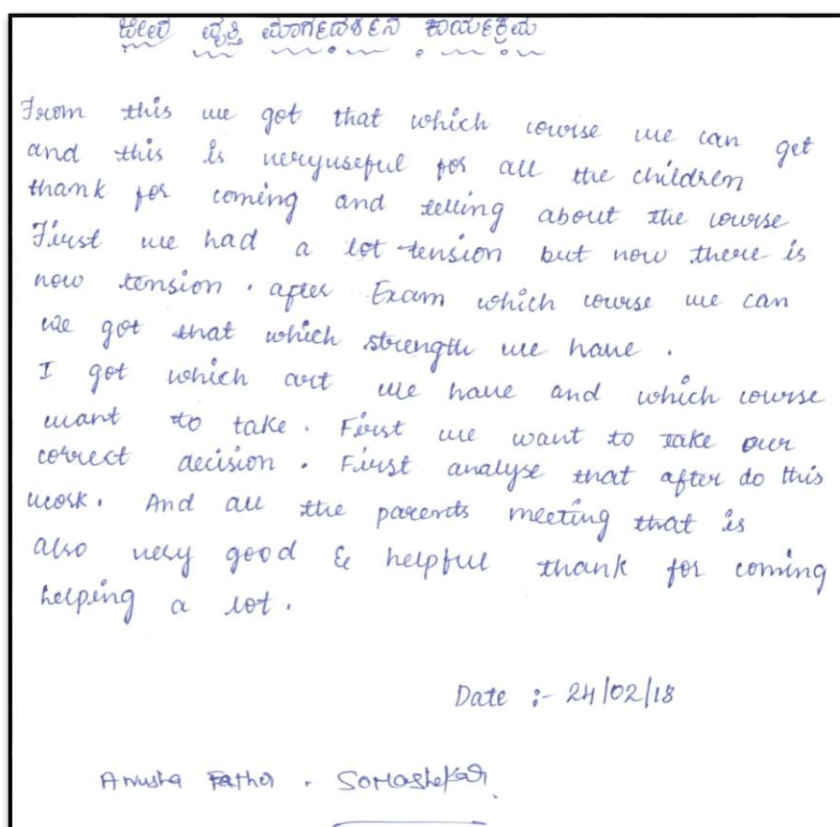 ಜೀವನ ವೃತ್ತಿ ಮಾರ್ಗದರ್ಶನ ಕಾರ್ಯಕ್ರಮ
From this we got that which course we can get
and this is veryuseful for all the children
thank for coming and telling about the course
First we had a lot tension but now there is
now tension. after Exam which course we can
we got that which strength we have.
I got which art we have and which course
want to take. First we want to take our
correct decision. First analyse that after do this
work. And all the parents meeting that is
also very good & helpful thank for coming
helping a lot.
Date :- 24/02/18
Anusha Father. Somashekar